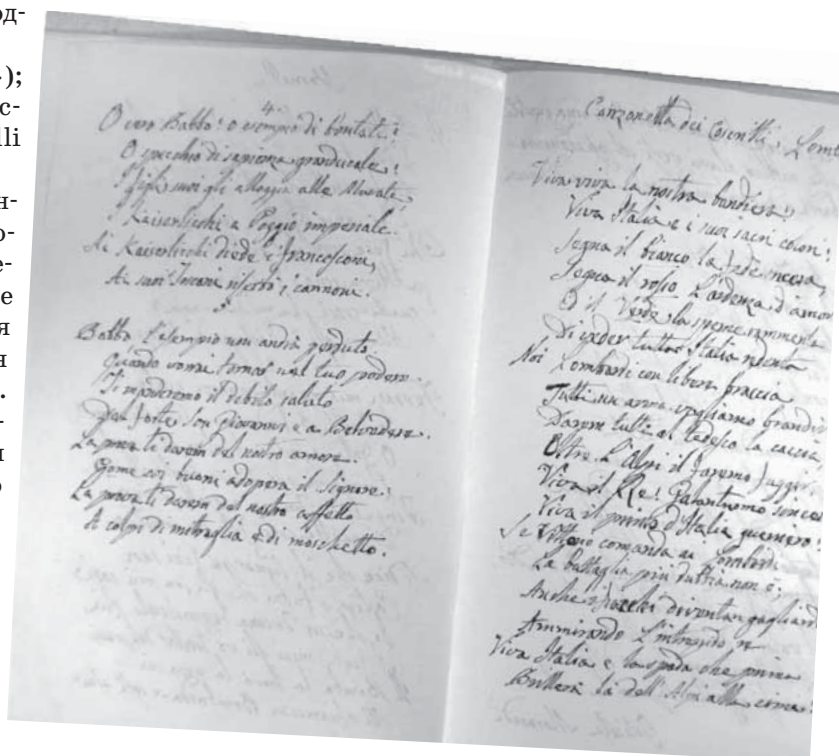 од-
);
с-
lli
н-
о-
е-
е
я
я
.
-
я
о
4.
O vero Babbo! o esempio di bontate!
O specchio di sapienza granducale!
I figli suoi gli alloggia alle Murate,
I Kaiserlicchi a Poggio imperiale.
Ai Kaiserlicchi diede i francesconi,
Ai suoi Toscani i cannoni.
5
Babbo l'esempio non andrà perduto
Quando vorrai tornar nel tuo podere
Ti manderemo il debito saluto
Dal forte San Giovanni e a Belvedere.
La prova ti darem del nostro amore.
Come coi buoni adopera il Signore:
La prova ti darem del nostro affetto
A colpi di mitraglia e di moschetto.
Canzonetta dei Coscritti, Lomb
Viva viva la nostra bandiera!
Viva Italia e i suoi sacri colori!
Segna il bianco la fede sincera,
Segna il rosso l'ardenza d'amor
E il Verde la speme rammenta
Di veder tutta Italia redenta
Noi Lombardi con libere braccia
Tutti un'arma vogliamo brandir
Daremo tutti al tedesco la caccia,
Oltre l'Alpi il faremo fuggir.
Viva il Re! Galantuomo sincer
Viva il primo d'Italia guerriero!
Se Vittorio comanda ai Lombardi
La battaglia più dubbia non è.
Anche i diventan gagliard
Ammirando l'intrepido re
Viva Italia e la spada che prima
Brillerà là dell'Alpi alla cima!